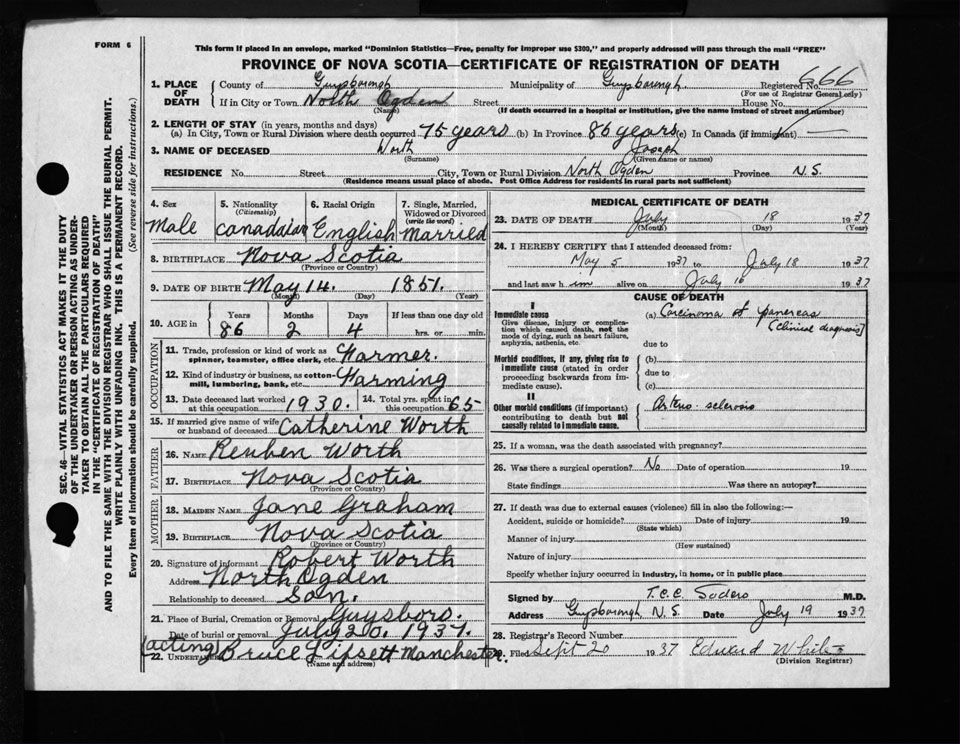 FORM 6
This form if placed in an envelope, marked "Dominion Statistics—Free, penalty for improper use $300," and properly addressed will pass through the mail "FREE"
PROVINCE OF NOVA SCOTIA—CERTIFICATE OF REGISTRATION OF DEATH
SEC. 46—VITAL STATISTICS ACT MAKES IT THE DUTY
OF THE UNDERTAKER OR PERSON ACTING AS UNDER-
TAKER TO OBTAIN ALL THE PARTICULARS REQUIRED
IN THE "CERTIFICATE OF REGISTRATION OF DEATH"
AND TO FILE THE SAME WITH THE DIVISION REGISTRAR WHO SHALL ISSUE THE BURIAL PERMIT.
WRITE PLAINLY WITH UNFADING INK. THIS IS A PERMANENT RECORD.
Every item of information should be carefully supplied. (See reverse side for instructions.)
1. PLACE OF DEATH County of Guysborough Municipality of Guysborough. Registered No. 666
(For use of Registrar General only)
If in City or Town North Ogden Street House No.
(Name) (If death occurred in a hospital or institution, give the name instead of street and number)
2. LENGTH OF STAY (in years, months and days)
(a) In City, Town or Rural Division where death occurred 75 years (b) In Province 86 years (c) In Canada (if immigrant) —
3. NAME OF DECEASED Worth Joseph
(Surname) (Given name or names)
RESIDENCE No. Street City, Town or Rural Division North Ogden Province N.S.
(Residence means usual place of abode. Post Office Address for residents in rural parts not sufficient)
4. Sex Male
5. Nationality (Citizenship) Canadaian
6. Racial Origin English
7. Single, Married, Widowed or Divorced (write the word) Married
8. BIRTHPLACE Nova Scotia
(Province or Country)
9. DATE OF BIRTH May 14. 1851.
(Month) (Day) (Year)
10. AGE in Years Months Days If less than one day old
86 2 4 hrs. or min.
OCCUPATION
11. Trade, profession or kind of work as spinner, teamster, office clerk, etc. Farmer.
12. Kind of industry or business, as cotton-mill, lumbering, bank, etc. Farming
13. Date deceased last worked at this occupation 1930. 14. Total yrs. spent in this occupation 65
15. If married give name of wife or husband of deceased Catherine Worth
FATHER
16. NAME Reuben Worth
17. BIRTHPLACE Nova Scotia
(Province or Country)
MOTHER
18. MAIDEN NAME Jane Graham
19. BIRTHPLACE Nova Scotia
(Province or Country)
20. Signature of informant Robert Worth
Address North Ogden
Relationship to deceased Son.
21. Place of Burial, Cremation or Removal Guysboro.
Date of burial or removal July 20. 1937.
(acting)
22. UNDERTAKER Bruce Lipsett Manchester.
(Name and address)
MEDICAL CERTIFICATE OF DEATH
23. DATE OF DEATH July 18 1937
(Month) (Day) (Year)
24. I HEREBY CERTIFY that I attended deceased from:
May 5 1937 to July 18 1937
and last saw him alive on July 16 1937
CAUSE OF DEATH
I
Immediate cause
Give disease, injury or complication which caused death, not the mode of dying, such as heart failure, asphyxia, asthenia, etc.
(a) Carcinoma of pancreas
(Clinical diagnosis)
due to
Morbid conditions, if any, giving rise to immediate cause (stated in order proceeding backwards from immediate cause).
(b)
due to
(c)
II
Other morbid conditions (if important) contributing to death but not causally related to immediate cause.
Arterio-sclerosis
25. If a woman, was the death associated with pregnancy?
26. Was there a surgical operation? No Date of operation 19
State findings Was there an autopsy?
27. If death was due to external causes (violence) fill in also the following:—
Accident, suicide or homicide? Date of injury 19
(State which)
Manner of injury
(How sustained)
Nature of injury
Specify whether injury occurred in industry, in home, or in public place
Signed by T.C.C. Sodero M.D.
Address Guysborough, N.S. Date July 19 1937
28. Registrar's Record Number
29. Filed Sept 20 1937 Edward White
(Division Registrar)